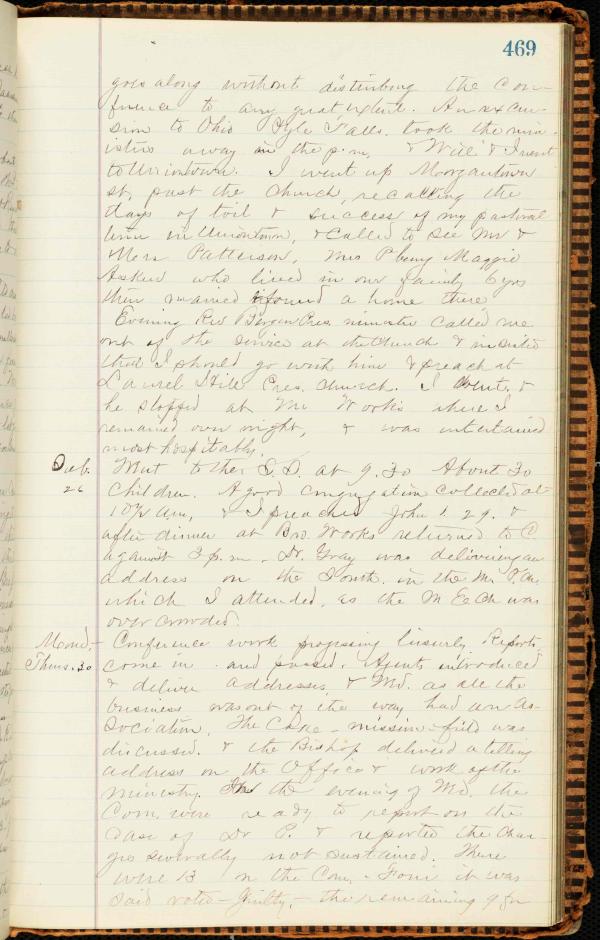 469
goes along without disturbing the Con-
ference to any great extent. An excur-
sion to Ohio Pyle Falls. took the min-
isters away in the p.m. & Will & I went
to Uniontown. I went up Morgantown
st, past the church, recalling the
days of toil & success of my pastoral
term in Uniontown, & called to see Mr &
Mrs Patterson, Mrs P being Maggie
Asker who lived in our family 6 yrs
then married & found a home there
Evening Rev Pres. minister called me
out of the service at the church & insisted
that I should go with him & preach at
Laurel Hill Pres. Church. I went, &
he stopped at Mr Work's where I
remained over night, & was entertained
most hospitably.
Sab. Met to her S.S. at 9.30 About 30
26 children. A good congregation collected at
10½ a.m, & I preached John 1.29. &
after dinner at Bro. Works returned to C.
against 3 p.m. Dr. Gray was delivering an
address on the South. in the M. P. Ch.
which I attended, as the M E Ch was
over crowded.
Mond,- Conference work progressing leisurely. Reports
Thurs. 30 come in and passed. Agents introduced
& deliver addresses, & Wd. as all the
business was out of the way had an As-
sociation. The Case - mission-field was
discussed. & the Bishop delivered a telling
address on the Office & work of the
ministry. In the evening of Wd. the
Com. were ready to report on the
case of Dr P. & reported the char-
ges severally not sustained. There
were 13 on the Com, - Four it was
said voted - Guilty, - the remaining 9 for